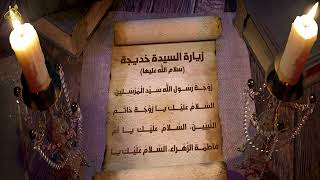 زيارة السيدة خديجة
(سلام الله عليها)
زوجة رسول الله سيد المرسلين،
السلام عليك يا زوجة خاتم
النبيين، السلام عليك يا أم
فاطمة الزهراء، السلام عليك يا